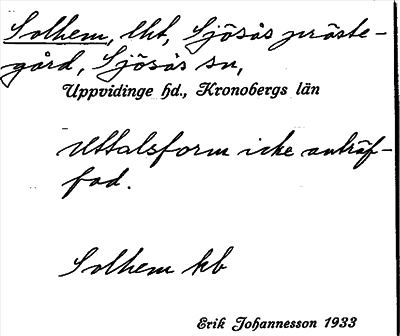 Solhem, lht, Sjösås präste-
gård, Sjösås sn,
Uppvidinge hd., Kronobergs län
Uttalsform icke anträf-
fad.
Solhem kb
Erik Johannesson 1933